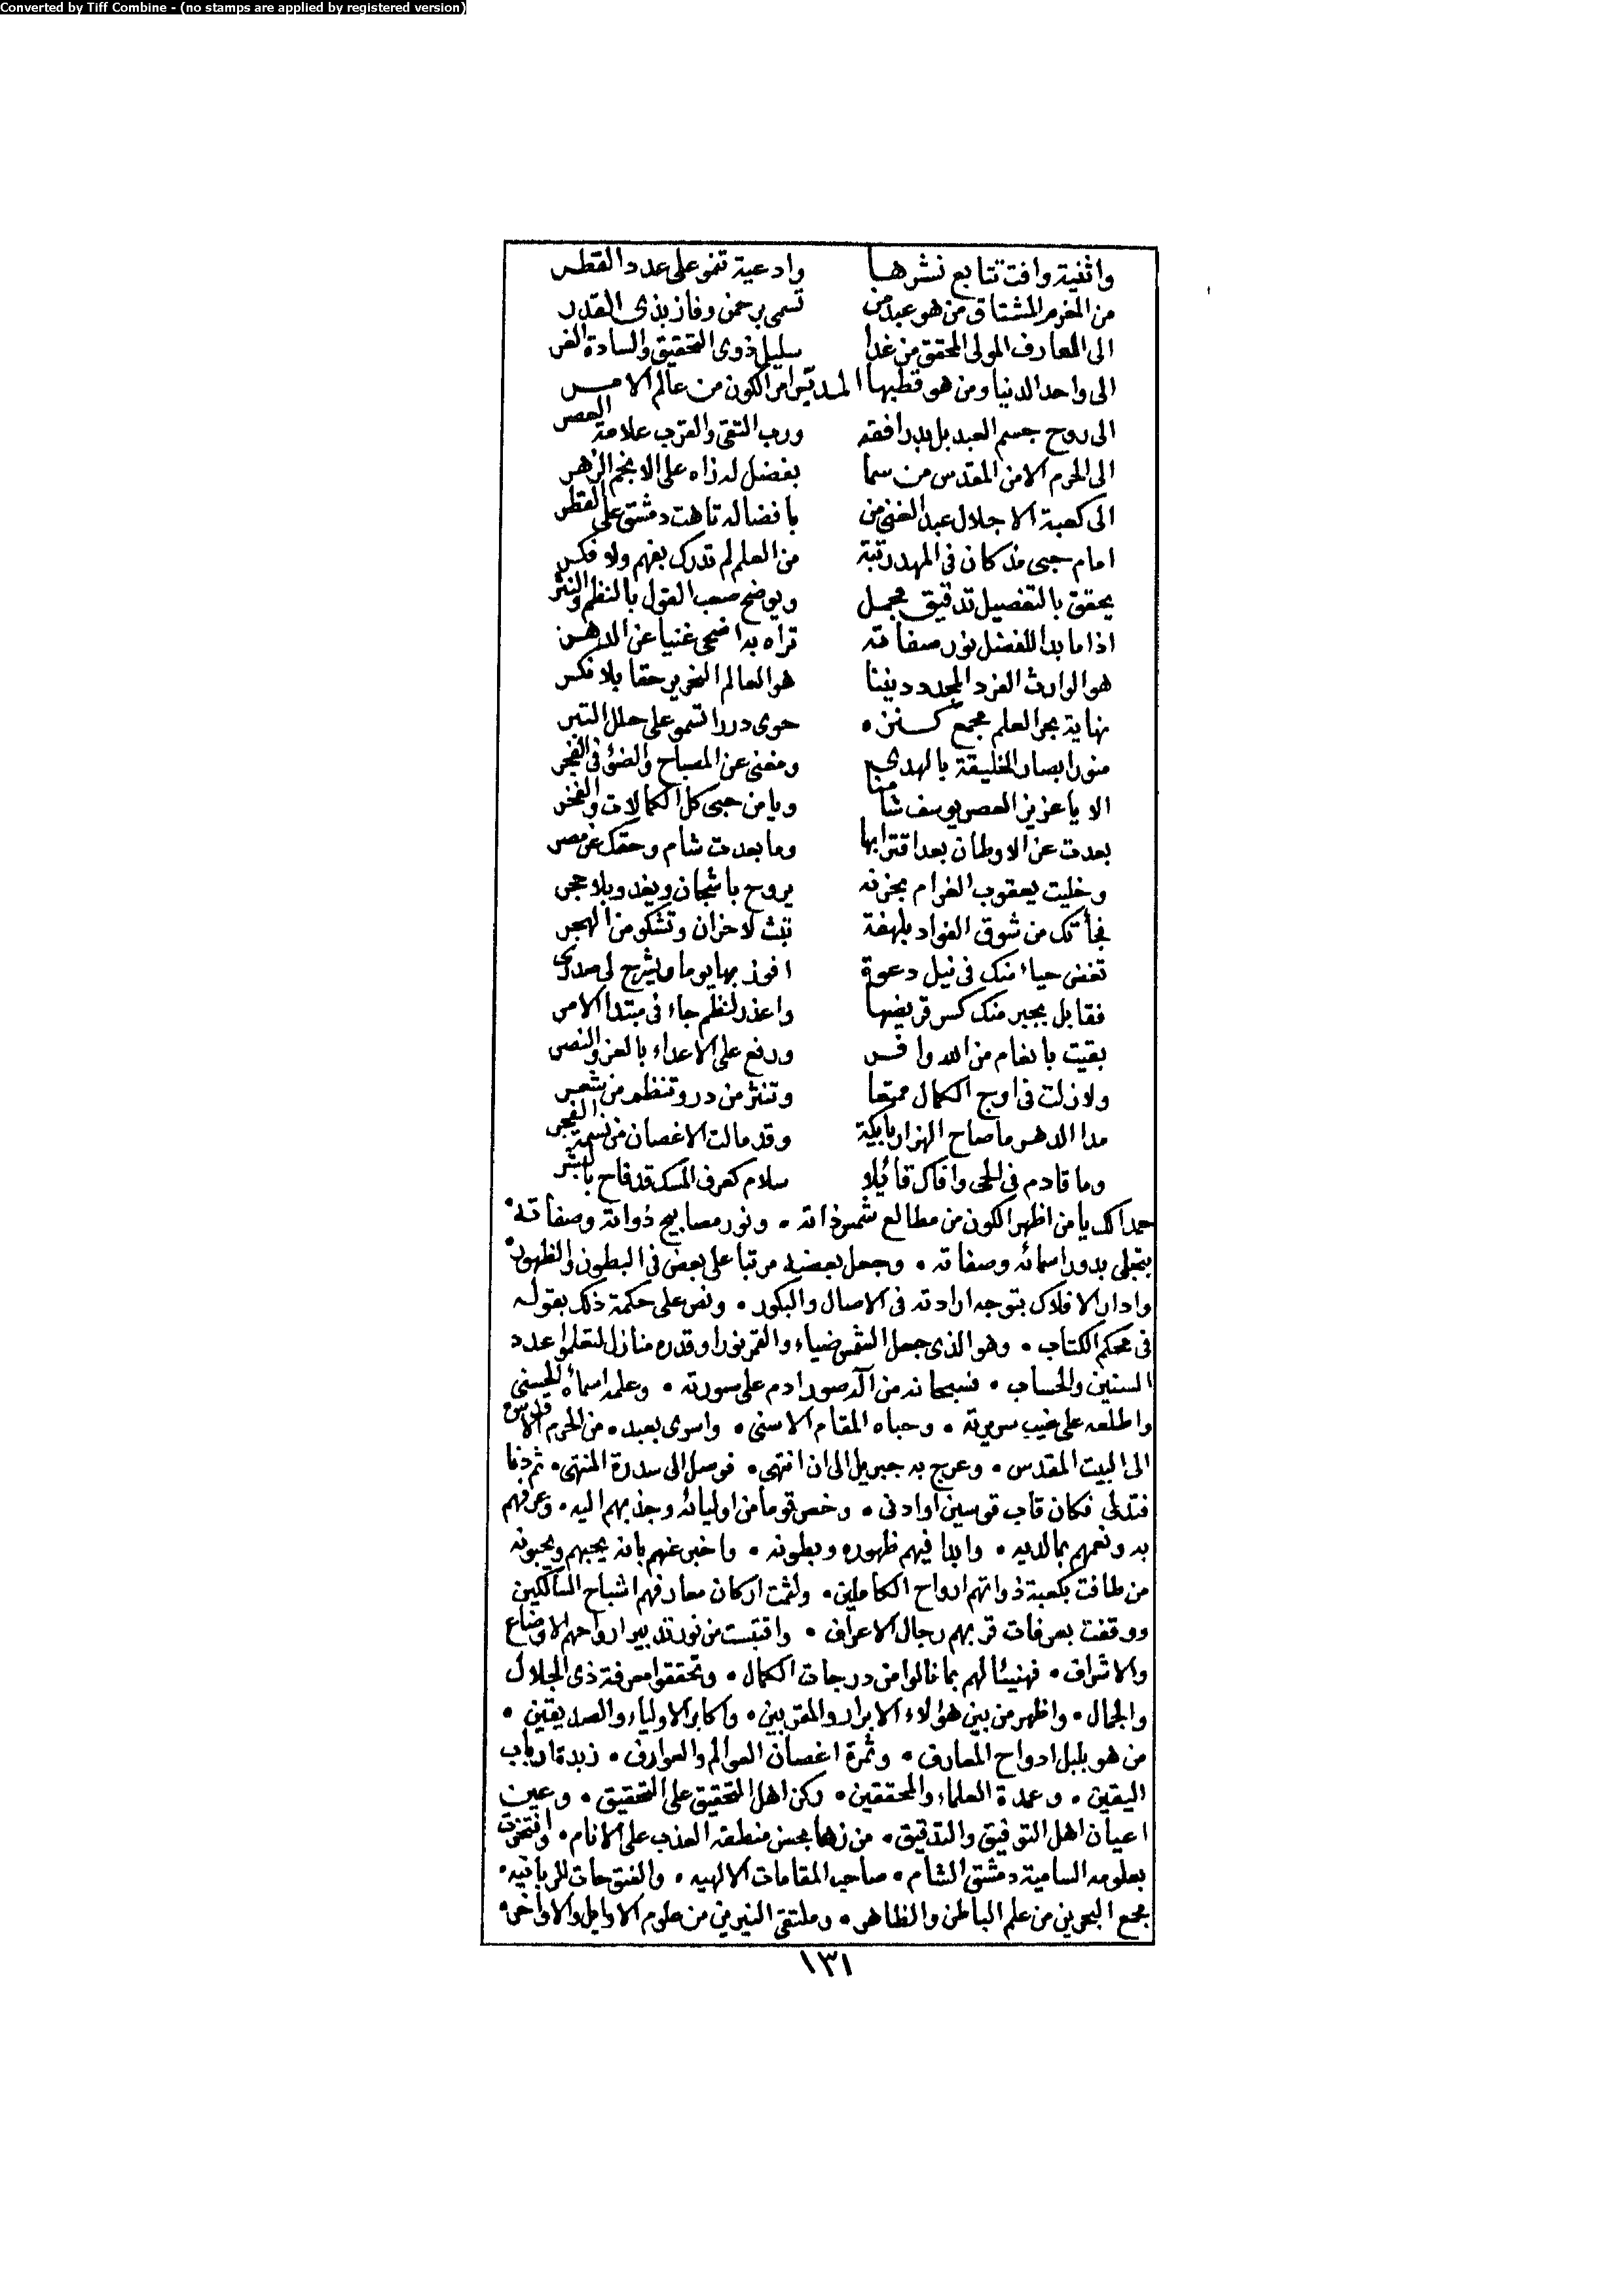 Converted by Tiff Combine - (no stamps are applied by registered version)
واثنية وافت تتابع نشرها وادعية تنمو على عدد القطر
من المغرم المشتاق من هو عبد من تسمى برحمن وفاز بذى القدر
الى العارف المولى المحقق من غدا سليل ذوى التحقيق والسادة الغر
الى واحد الدنيا ومن هو قطبها المدبر امر الكون من عالم الامر
الى روح جسم العبد بل بدر افقه ورب التقى والقرب علامة العصر
الى الحرم الامن المقدس من سما بفضل له زاه على الانجم الزهر
الى كعبة الاجلال عبد الغنى من بافضاله تاهت دمشق على القطر
امام حبى مذ كان فى المهد رتبة من العلم لم تدرك بفهم ولا فكر
يحقق بالتفصيل تدقيق مجمل ويوضح صعب القول بالنظم والنثر
اذا ما بدا للفضل نور صفاته تراه به اضحى غنيا عن الدهر
هو الوارث الفرد المجدد ديننا هو العالم النحرير حقا بلا فكر
نهاية بحر العلم مجمع كنزه حوى دررا تسمو على حلل التبر
منور ابصار الخليقة بالهدى ومغنى عن المصباح والضؤ فى الفجر
الا يا عزيز العصر يوسف شامنا ويا من حبى كل الكمالات والفخر
بعدت عن الاوطان بعد اقترابها وما بعدت شام وحقك عن مصر
وخليت يعقوب الغرام بحزنه يروح باشجان ويغدو بلا حجر
فجأتك من شوق الفواد بلهفة تبث لاحزان وتشكو من الهجر
تغض حياء منك فى نيل دعوة افوز بها يوما ويشرح لى صدرى
فقابل بجبر منك كسر قريضها واعذر لنظم جاء فى مبتدا الامر
بقيت بانعام من الله وافر ورفع على الاعداء بالعز والنصر
ولا زلت فى اوج الكمال ممتعا وتنثر من در وتنظم من شعر
مدا الدهر ما صاح الهزار بايكة وقد مالت الاغصان من نسمة الفجر
وما قادم فى الحى وافاك قائلا سلام كعرف المسك قد فاح بالبشر
حمدا لك يا من اظهر الكون من مطالع شموس ذاته • ونور مصابيح ذواته وصفاته •
بتجلى بدور اسمائه وصفاته • وجعل بعضه مرتبا على بعض فى البطون والظهور •
وادار الافلاك بتوجه ارادته فى الاصال والبكور • ونص على حكمة ذلك بقوله
فى محكم الكتاب • وهو الذى جعل الشمس ضياء والقمر نورا وقدره منازل لتعلموا عدد
السنين والحساب • فسبحانه من اله صور ادم على صورته • وعلمه اسمائه الحسنى
واطلعه على غيب سريرته • وحباه المقام الاسنى • واسرى بعبده من الحرم الاقدس
الى البيت المقدس • وعرج به جبريل الى ان انتهى • فوصل الى سدرة المنتهى • ثم دنا
فتدلى فكان قاب قوسين او ادنى • وخص قوما من اوليائه وجذبهم اليه • وعرفهم
به ونعمهم بما لديه • وابدا فيهم ظهوره وبطونه • واخبر عنهم بانه يحبهم ويحبونه
من طافت بكعبة ذواتهم ارواح الكاملين • ولثمت اركان معارفهم اشباح السالكين
ووقفت بعرفات قربهم رجال الاعراف • واقتبست من نور تدبير ارواحهم الاوضاع
والاشراف • فهنيئا لهم بما نالوا من درجات الكمال • وتحققوا معرفة ذى الجلال
والجمال • واظهر من بين هؤلاء الابرار والمقربين • واكابر الاولياء والصديقين •
من هو بلبل ادواح المعارف • وثمرة اغصان العوالم والعوارف • زبدة ارباب
اليقين • وعمدة العلماء والمحققين • ركن اهل التحقيق على التحقيق • وعين
اعيان اهل التوفيق والتدقيق • من زها بحسن منطقه العذب على الانام • وافتخرت
بعلومه السامية دمشق الشام • صاحب المقامات الالهيه • والفتوحات الربانيه •
مجمع البحرين من علم الباطن والظاهر • وملتقى النيرين من علوم الاوايل والاواخر •
١٣١